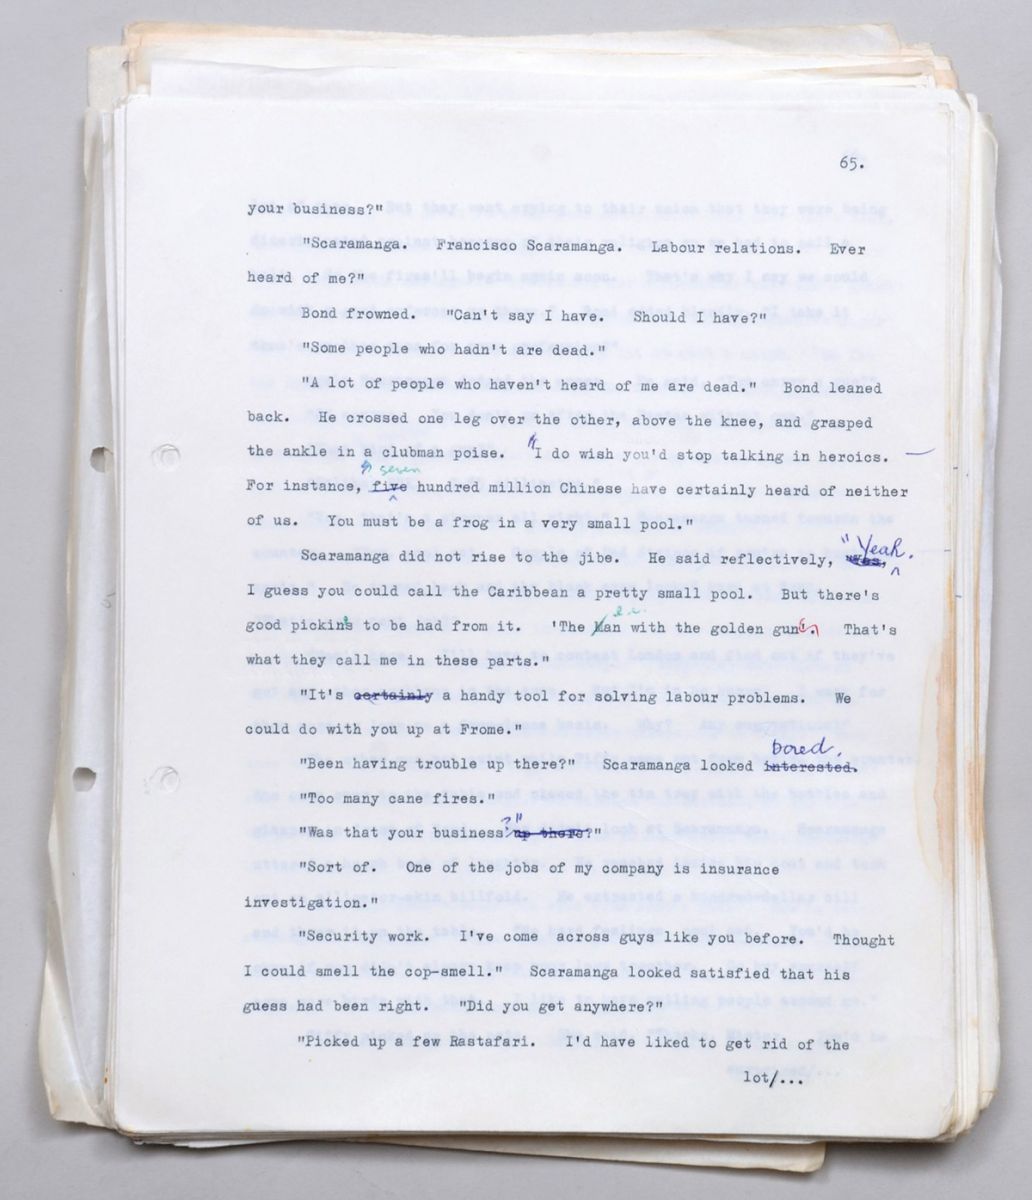 65.
your business?"
"Scaramanga. Francisco Scaramanga. Labour relations. Ever
heard of me?"
Bond frowned. "Can't say I have. Should I have?"
"Some people who hadn't are dead."
"A lot of people who haven't heard of me are dead." Bond leaned
back. He crossed one leg over the other, above the knee, and grasped
the ankle in a clubman poise. "I do wish you'd stop talking in heroics.
seven
For instance, five hundred million Chinese have certainly heard of neither
of us. You must be a frog in a very small pool."
"Yeah.
Scaramanga did not rise to the jibe. He said reflectively, "Yes,
I guess you could call the Caribbean a pretty small pool. But there's
l.c.
good pickins to be had from it. 'The Man with the golden gun'. That's
what they call me in these parts."
"It's certainly a handy tool for solving labour problems. We
could do with you up at Frome."
bored.
"Been having trouble up there?" Scaramanga looked interested.
"Too many cane fires."
"Was that your business?" up there?"
"Sort of. One of the jobs of my company is insurance
investigation."
"Security work. I've come across guys like you before. Thought
I could smell the cop-smell." Scaramanga looked satisfied that his
guess had been right. "Did you get anywhere?"
"Picked up a few Rastafari. I'd have liked to get rid of the
lot/...